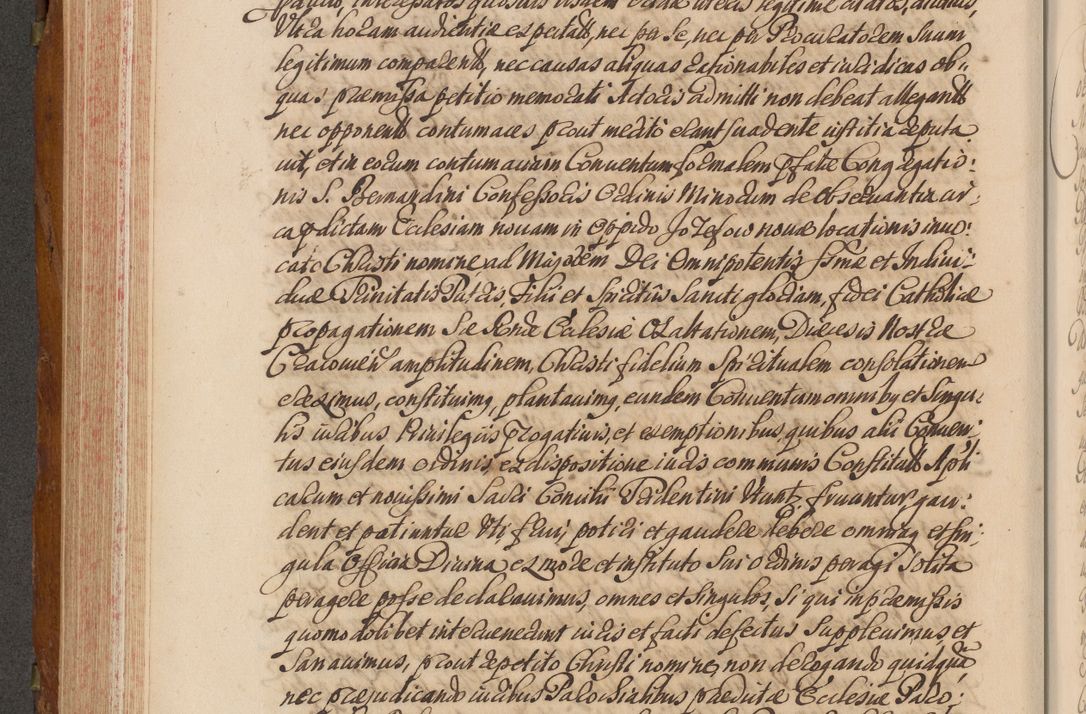 Ultra horam audientiæ expectatt, nec per se, nec per Procuratorem Suum
legitimum comparentt, nec causas aliquas rationabiles et iuridicas ob-
quas præmissa petitio memorati Actoris admitti non debeat allegantt
nec opponentt contumaces prout merito erant suadente iustitia reputa
uit, et in eorum contumaciam Conuentum formalem præfatæ Congregatio:
nis S. Bernardini Confessoris Ordinis Minorum de Obseruantia cir,
ca prædictam Ecclesiam nouam in oppido Jozefow nouæ locationis inuo:
cato Christi nomine ad Majorem Dei Omnipotentis summæ et Indiui:
duæ Trinitatis Patris, Filii et Spiritus Sancti gloriam, fidei Catholicæ
propagationem Sæ Romæ Ecclesiæ Exaltationem, Diæcesis Nostræ
Cracouien amplitudinem, Christi fidelium Spiritualem consolationem
ereximus, constituimq, plantauimq, eundem Conuentum omnibq et Singu:
lis iuribus Priuilegiis prerogatiuis, et exemptionibus, quibus alii Conuen:
tus eiusdem ordinis, ex dispositione iuris communis Constitutt Apli
carum et nouissimi Sacri Concilii Tridentini Utunt, fruuntur, gau:
dent et potiuntur Uti, frui, potiri et gaudere debere omniaq et sin:
gula Officia Diuina ex more et instituto Sui ordinis peragi Solita
peragere posse declarauimus, omnes et Singulos, Si qui in præmissis
quomodolibet interuenerunt iuris et facti defectus Suppleuimus, et
Sanauimus, prout repetito Christi nomine, non derogando quidquã
nec præjudicando iuribus Parochialibus prædictæ Ecclesiæ Paro: